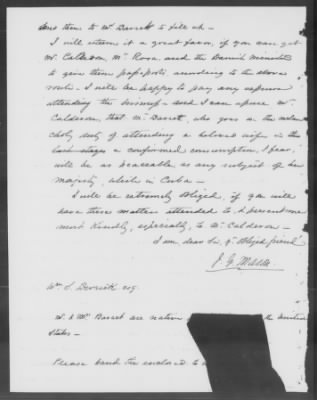 send them to Mr Barrett to fill up -
I will esteem it a great favor, if you can get
Mr. Calderon, Mr Rosa, and the Danish minister
to give them passports according to the above
route - I will be happy to pay any expense
attending the - and I can assure Mr.
Calderon that Mr Barrett, who goes on the melan
choly duty of attending a beloved wife in the
last stages a confirmed consumption, I fear,
will be as peaceable as any subject of her
majesty, while in Cuba -
I will be extremely obliged, if you will
have these matters attended to, & present me
most kindly, especially, to Mr. Calderon -
I am dear Sir, yr obliged friend
J. G.
Wm S. Derrick esq.
& Mrs Barret are native the United
States -
Please hand the enclosed to